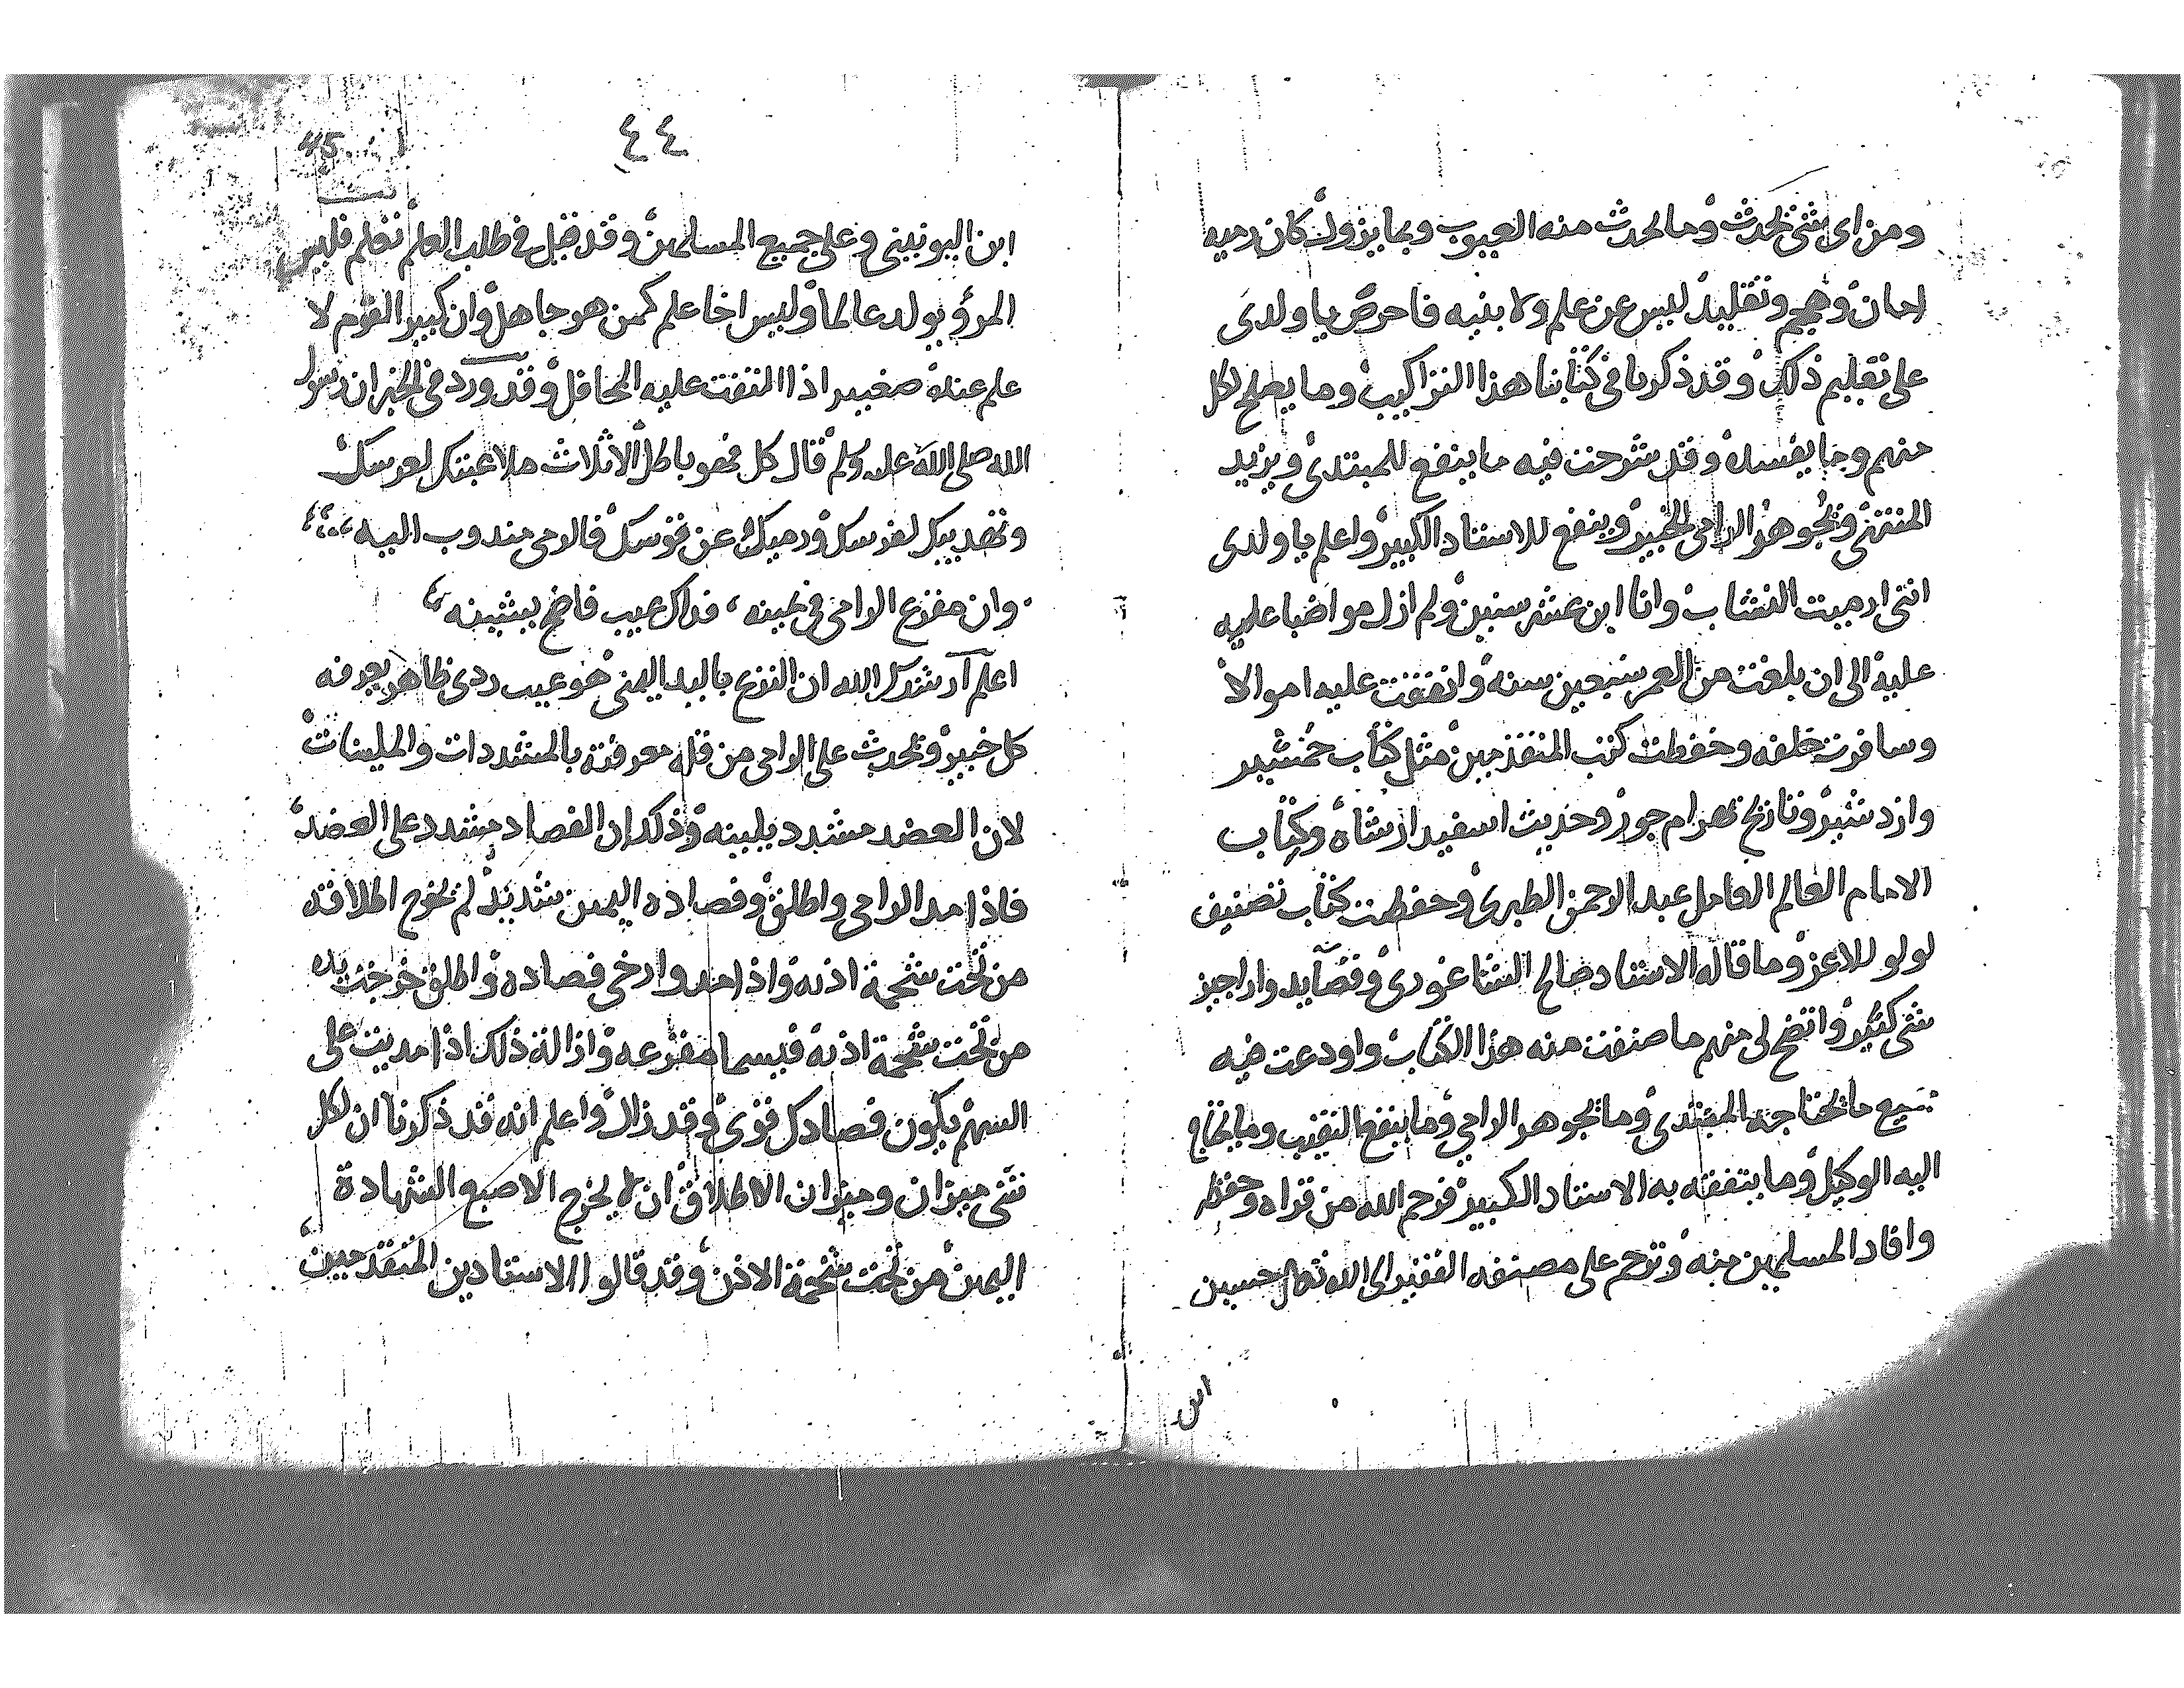 ومن اى شى تحدث وما يحدث منه العيوب وبما يزول كان رميه
وتقليد ليس عن علم ولا بنيه فاحرص يا ولدى
على تعليم ذلك وقد ذكرنا فى كتابنا هذا التراكيب وما يصلح لكل
منهم وما يفسده وقد شرحت فيه ما ينفع للمبتدى ويزيد
المنتهى ويجوهر الرامى الخبير وينفع للاستاد الكبير واعلم يا ولدى
اننى ارميت النشاب وانا ابن عشر سنين ولم ازل مواضبا عليه
عليه الى ان بلغت من العمر سبعين سنه وانفقت عليه اموالا
وسافرت خلفه وحفظت كتب المتقدمين مثل كتاب
وازدشير وتاريخ بهرام جور وحديث اسفيد ارشاه وكتاب
الامام العالم العامل عبد الرحمن الطبرى وحفظت كتاب تصنيف
لولو للاعز وما قاله الاستاد صالح الشاغورى وقصايد واراجيز
شى كثير واتضح لى منهم ما صنفت منه هذا الكتاب واودعت فيه
جميع ما يحتاجه المبتدى وما يجوهر الرامى وما ينفع النقيب وما يحتاج
اليه الوكيل وما يتفقه به الاستاد الكبير فرحم الله من قراه وحفظه
وافاد المسلمين منه وترحم على مصنفه الفقير الى الله تعالى حسين
ابن
٤٤
45
ابن اليونينى وعلى جميع المسلمين وقد قيل فى طلب العلم تعلم فليس
المرؤ يولد عالما وليس اخا علم كمن هو جاهل وان كبير القوم لا
علم عنده صغير اذا التفت عليه المحافل وقد ورد فى الخبر ان رسول
الله صلى الله عليه وسلم قال كل لهو باطل الا ثلاث ملاعبتك لعرسك
وتهديبك لفرسك ورميك عن قوسك فالرمى مندوب اليه
وان مفزع الرامى فى يمينه فداك عيب فاضح يشينه
اعلم ارشدك الله ان النزع باليد اليمنى هو عيب ردى ظاهر يعرفه
كل خبير ويحدث على الرامى من قلة معرفته بالمشددات والملينات
لان العضد مشدد يلينه وذلك ان القصاد مشدد على العضد
فاذا مد الرامى واطلق وقصاده اليمين شديد لم يخرج اطلاقه
من تحت شحمة اذنه واذا مد وارخى قصاده واطلق خرجت يده
من تحت شحمة اذنه فيسما مفزعه وازالة ذلك اذا مديت على
السهم يكون قصادك قوى وقد زال واعلم انه قد ذكرنا ان لكل
شى ميزان وميزان الاطلاق ان لا يخرج الاصبع الشهادة
اليمين من تحت شحمة الاذن وقد قالوا الاستادين المتقدمين